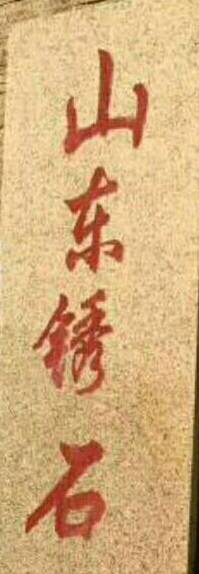 山东锈石